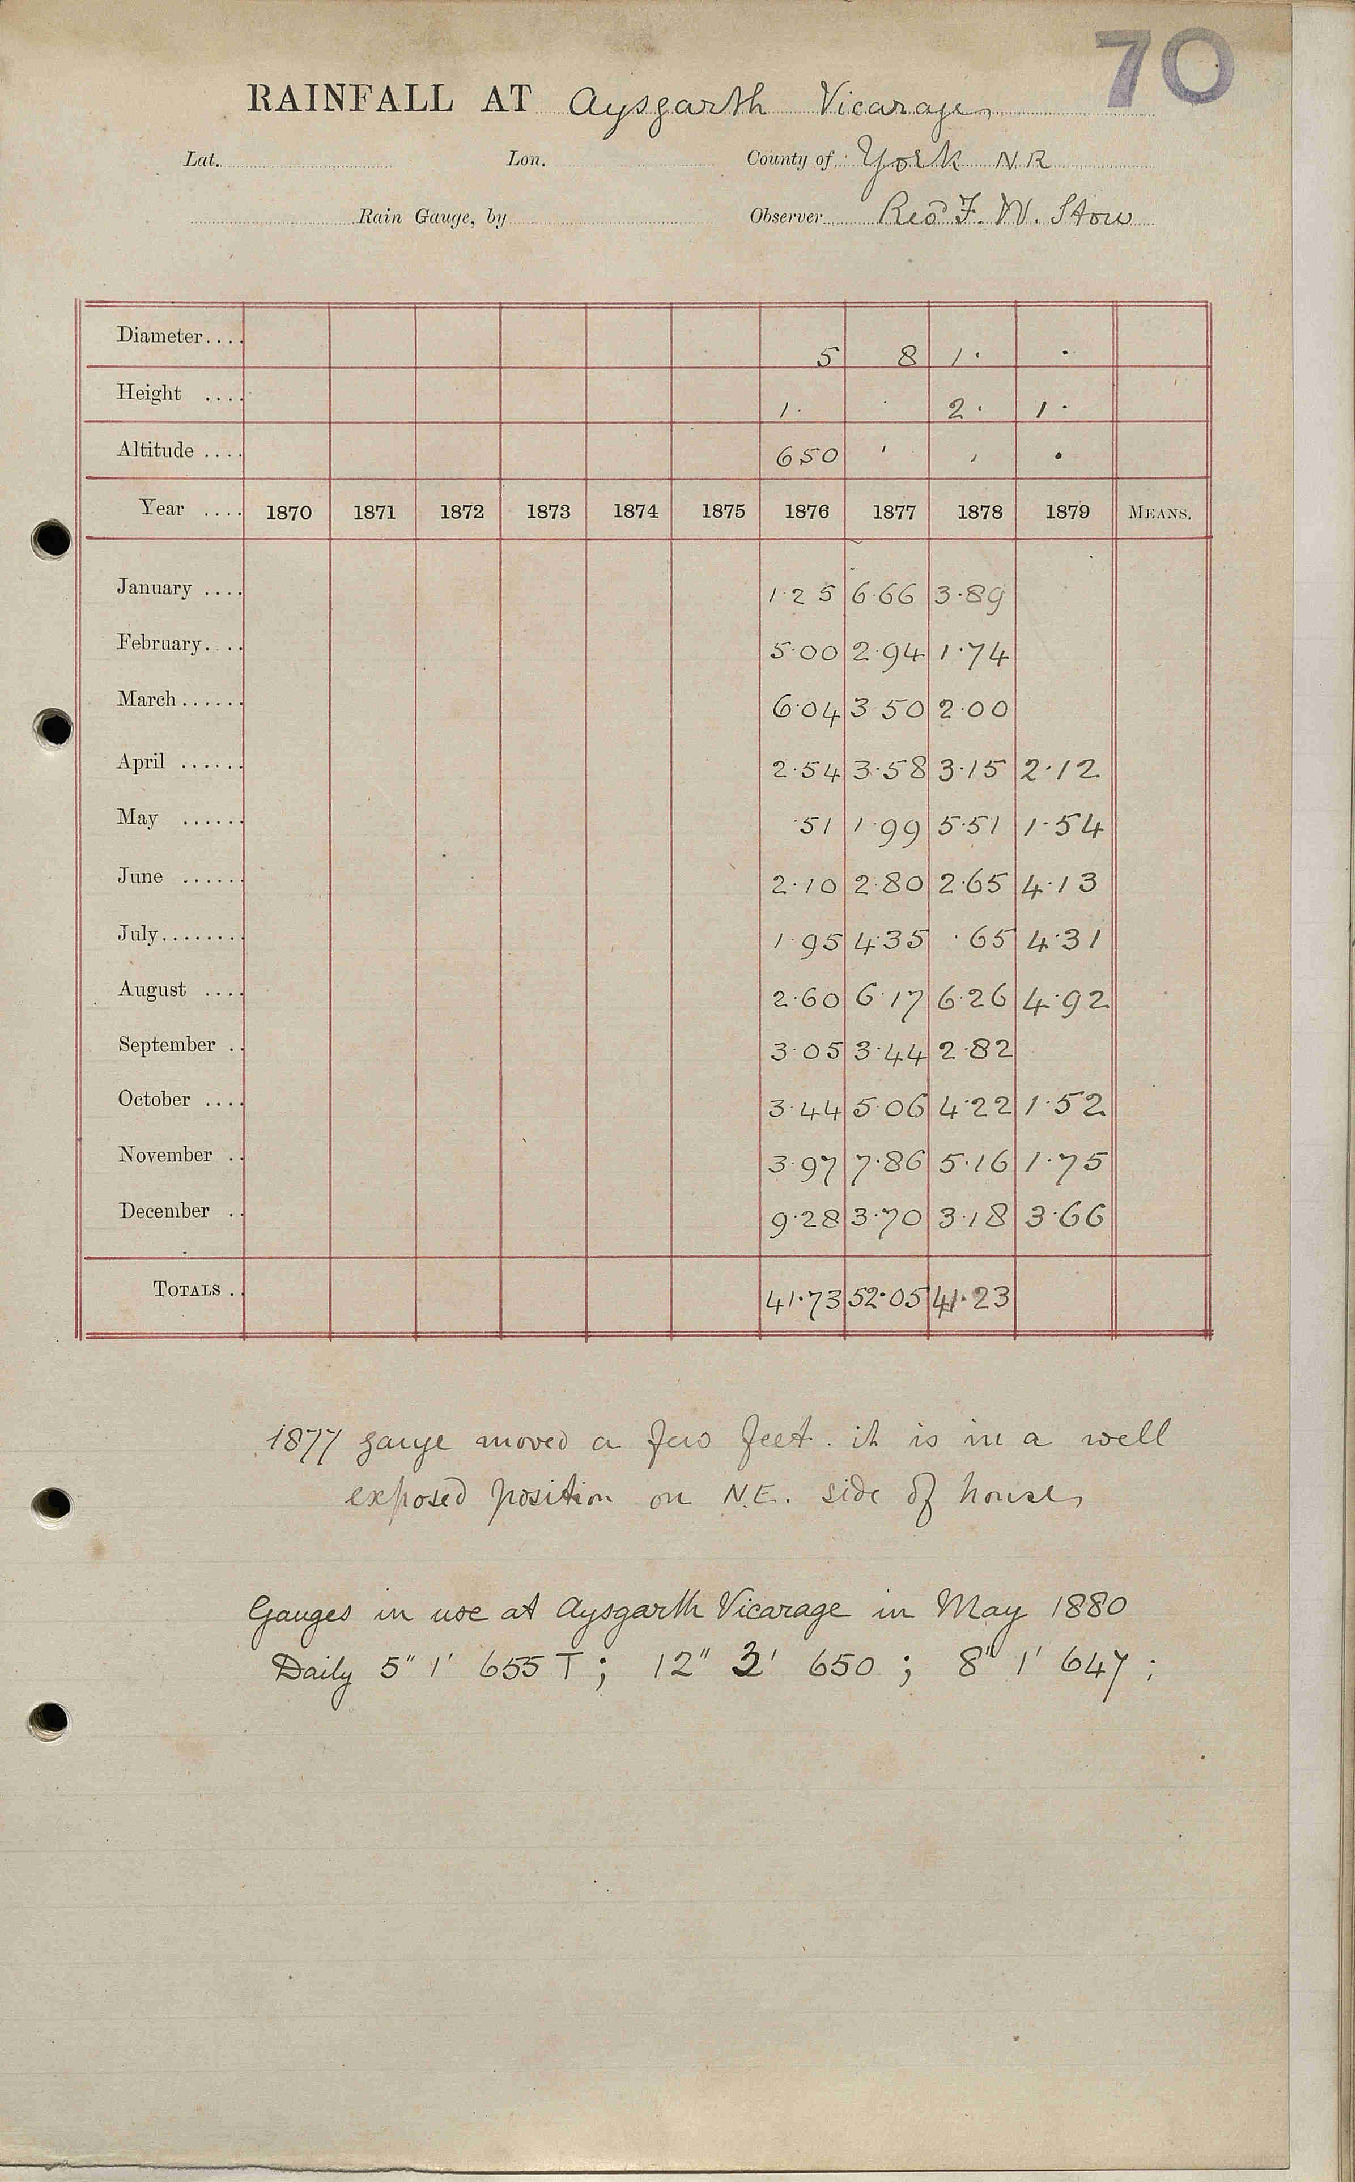 70
RAINFALL AT Aysgarth Vicarage
Lat. Lon. County of York N R
Rain Gauge, by Observer Rev F. W. Stow
Diameter.... 5 8 1· ·
Height .... 1· · 2· 1·
Altitude .... 650 ' , ·
Year .... 1870 1871 1872 1873 1874 1875 1876 1877 1878 1879 MEANS.
January .... 1·25 6·66 3·89
February.... 5·00 2·94 1·74
March...... 6·04 3·50 2·00
April ...... 2·54 3·58 3·15 2·12
May ...... ·51 1·99 5·51 1·54
June ...... 2·10 2·80 2·65 4·13
July........ 1·95 4·35 ·65 4·31
August .... 2·60 6·17 6·26 4·92
September .. 3·05 3·44 2·82
October .... 3·44 5·06 4·22 1·52
November .. 3·97 7·86 5·16 1·75
December .. 9·28 3·70 3·18 3·66
TOTALS .. 41·73 52·05 41·23
1877 gauge moved a few feet. it is in a well
exposed position on N.E. side of house
Gauges in use at Aysgarth Vicarage in May 1880
Daily 5" 1' 655 T ; 12" 2' 650 ; 8" 1' 647 ;